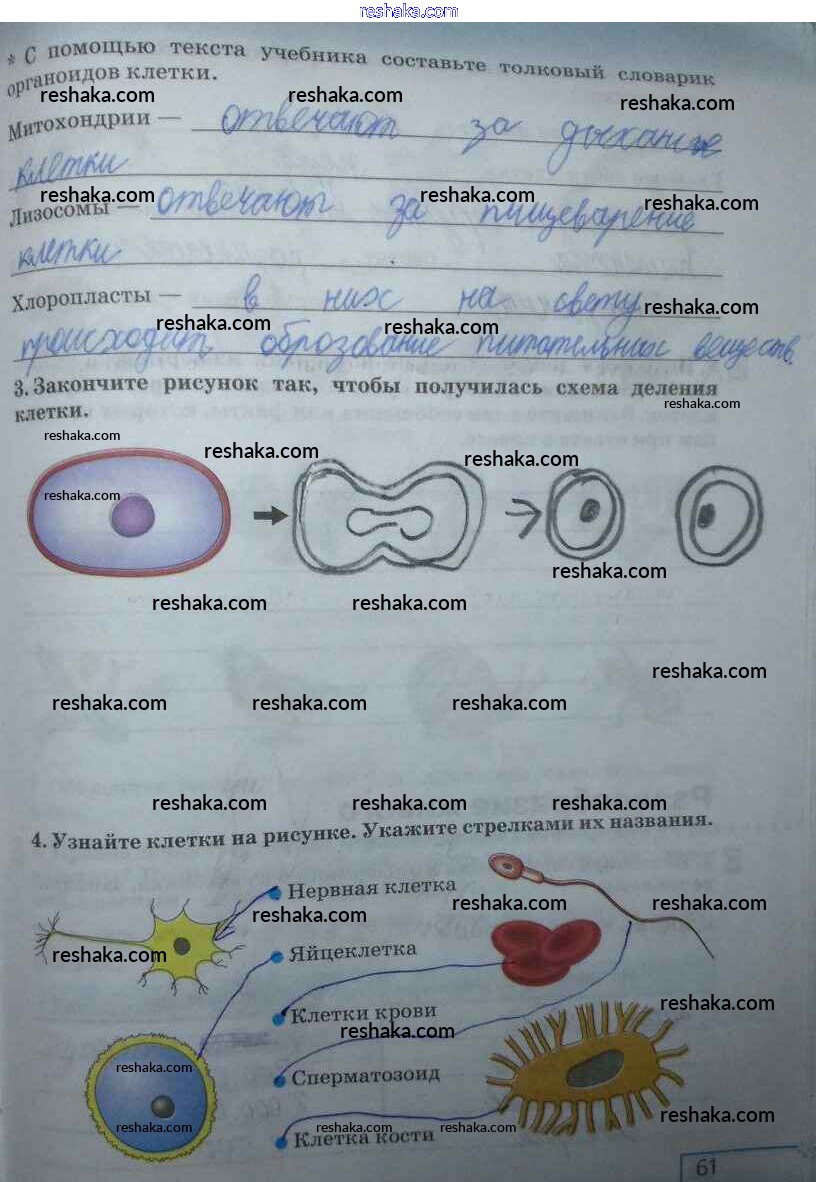 reshaka.com
* С помощью текста учебника составьте толковый словарик
органоидов клетки.
reshaka.com reshaka.com reshaka.com
Митохондрии — отвечают за дыхание
клетки
reshaka.com reshaka.com reshaka.com
Лизосомы — отвечают за пищеварение
клетки
Хлоропласты — в них на свету
reshaka.com reshaka.com reshaka.com
происходит образование питательных веществ.
3. Закончите рисунок так, чтобы получилась схема деления
клетки.
reshaka.com
reshaka.com reshaka.com reshaka.com
reshaka.com
reshaka.com
reshaka.com reshaka.com
reshaka.com
reshaka.com reshaka.com reshaka.com
reshaka.com reshaka.com reshaka.com
4. Узнайте клетки на рисунке. Укажите стрелками их названия.
Нервная клетка
reshaka.com reshaka.com reshaka.com
Яйцеклетка
reshaka.com
Клетки крови
reshaka.com reshaka.com
Сперматозоид
reshaka.com
Клетка кости
reshaka.com reshaka.com reshaka.com reshaka.com
61